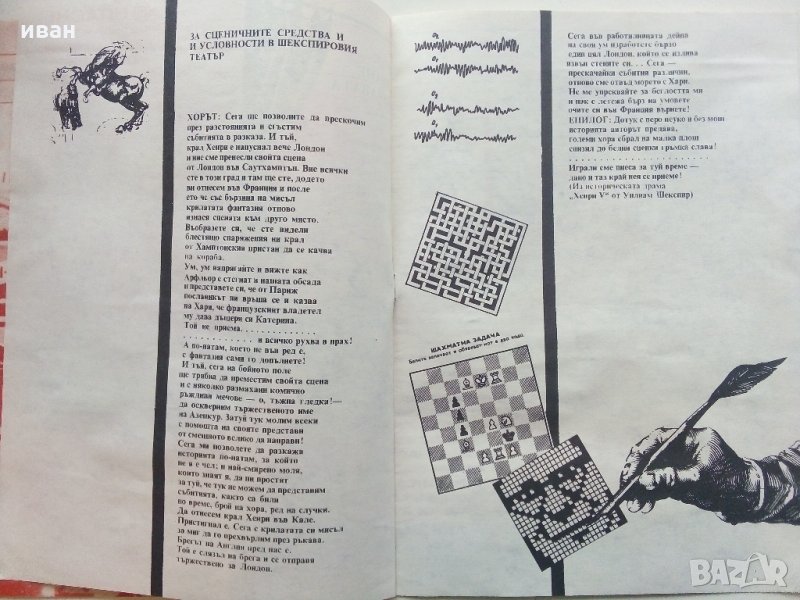 иван
ЗА СЦЕНИЧНИТЕ СРЕДСТВА И
И УСЛОВНОСТИ В ШЕКСПИРОВИЯ
ТЕАТЪР
ХОРЪТ: Сега ще позволите да прескочим
през разстоянията и сгъстим
събитията в разказа. И тъй,
крал Хенри е напуснал вече Лондон
и ние сме пренесли свойта сцена
от Лондон във Саутхамптън. Вие всички
сте в този град и там ще сте, додето
ви отнесем във Франция и после
ето че със бързина на мисъл
крилатата фантазия отново
изнася сцената към друго место.
Въобразете си, че сте видели
блестящо снаряжения ни крал
от Хамптонския пристан да се качва
на кораба.
Ум, ум напрягайте и вижте как
Арфльор е стегнат в нашата обсада
и представете си, че от Париж
посланикът ни връща се и казва
на Хари, че французският владетел
му дава дъщеря си Катерина.
Той не приема. . . . . . . . . . . . .
. . . . . . . . . . . . и всичко рухва в прах!
А по-натам, което не във ред е,
с фантазия сами го допълнете!
И тъй, сега на бойното поле
ще трябва да преместим свойта сцена
и с няколко размахани комично
ръждиви мечове — о, тъжна гледка! —
да оскверним тържественото име
на Азенкур. Затуй тук молим всеки
с помощта на своите представи
от смешното велико да направи!
Сега ми позволете да разкажа
историята по-натам, за който
не я е чел; и най-смирено моля,
които знаят я, да ни простят
за туй, че тук не можем да представим
събитията, както са били
по време, брой на хора, ред на случки.
Да отнесем крал Хенри във Кале.
Пристигнал е. Сега с крилатата си мисъл
за миг да го прехвърлим през ръкава.
Брегът на Англия пред нас е.
Той е слязъл на брега и се отправя
тържествено за Лондон.
ШАХМАТНА ЗАДАЧА
Белите започват и обявяват мат в два хода
Сега във работилницата дейна
на своя ум изработете бързо
един цял Лондон, който се излива
извън стените си. . . Сега —
прескачайки събития различни,
отново сме отвъд морето с Хари.
Не ме упреквайте за беглостта ми
и ние с летежа бърз на умовете
очите си във Франция върнете!
ЕПИЛОГ: Дотук с перо неуко и без мощ
историята авторът предава,
големи хора сбрал на малка площ
снизил до бедни сценки гръмка слава!
. . . . . . . . . . . . . . . . . . . .
Играли сме пиеса за туй време —
дано и таз край вея се приеме!
(Из историческата драма
„Хенри V“ от Уилиам Шекспир)
BAZAR